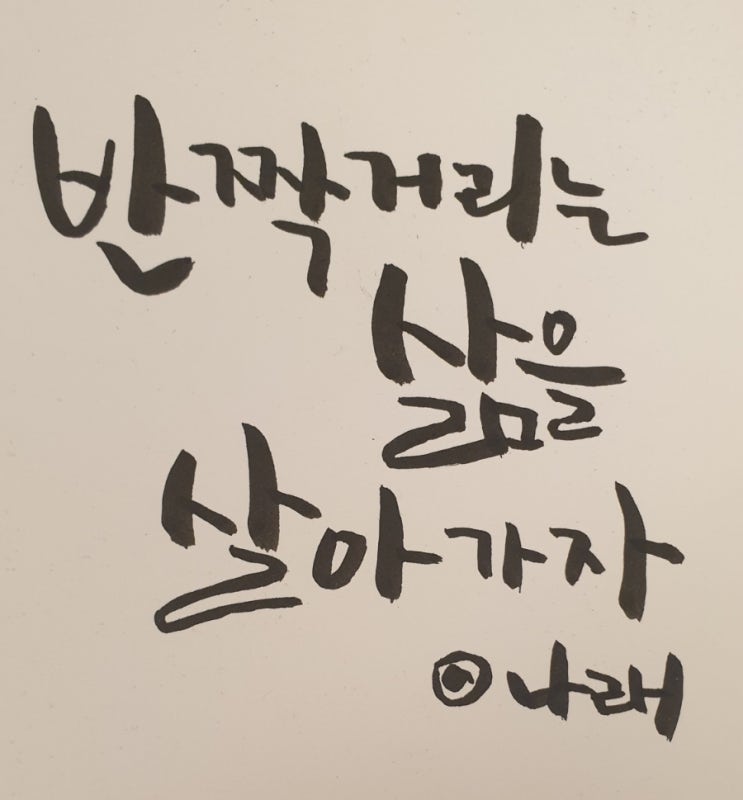 반짝거리는
삶을
살아가자
나래